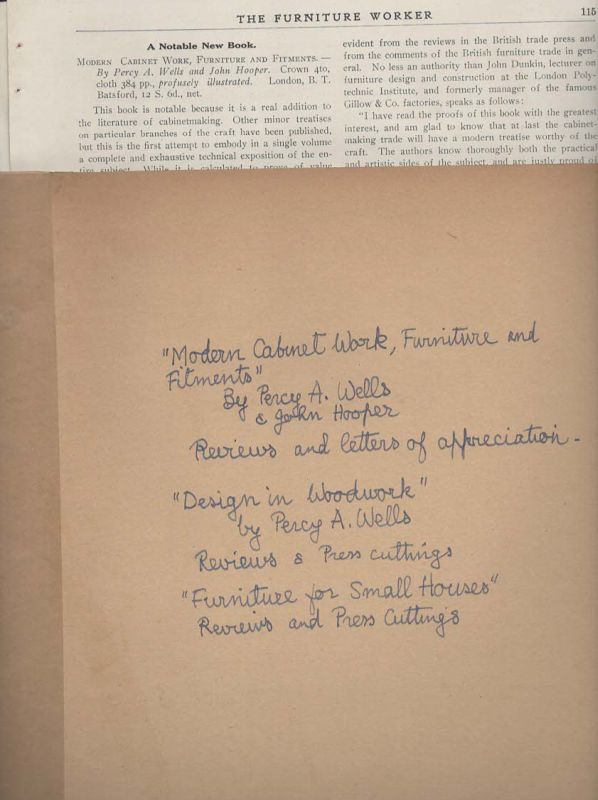 THE FURNITURE WORKER
115
A Notable New Book.
MODERN CABINET WORK, FURNITURE AND FITMENTS. —
By Percy A. Wells and John Hooper. Crown 4to,
cloth 384 pp., profusely illustrated. London, B. T.
Batsford, 12 S. 6d., net.
This book is notable because it is a real addition to
the literature of cabinetmaking. Other minor treatises
on particular branches of the craft have been published,
but this is the first attempt to embody in a single volume
a complete and exhaustive technical exposition of the en-
tire subject. While it is calculated to prove of value
evident from the reviews in the British trade press and
from the comments of the British furniture trade in gen-
eral. No less an authority than John Dunkin, lecturer on
furniture design and construction at the London Poly-
technic Institute, and formerly manager of the famous
Gillow & Co. factories, speaks as follows:
"I have read the proofs of this book with the greatest
interest, and am glad to know that at last the cabinet-
making trade will have a modern treatise worthy of the
craft. The authors know thoroughly both the practical
and artistic sides of the subject, and are justly proud of
"Modern Cabinet Work, Furniture and
Fitments"
By Percy A. Wells
& John Hooper
Reviews and letters of appreciation -
"Design in Woodwork"
by Percy A. Wells
Reviews & Press cuttings
"Furniture for Small Houses"
Reviews and Press Cuttings